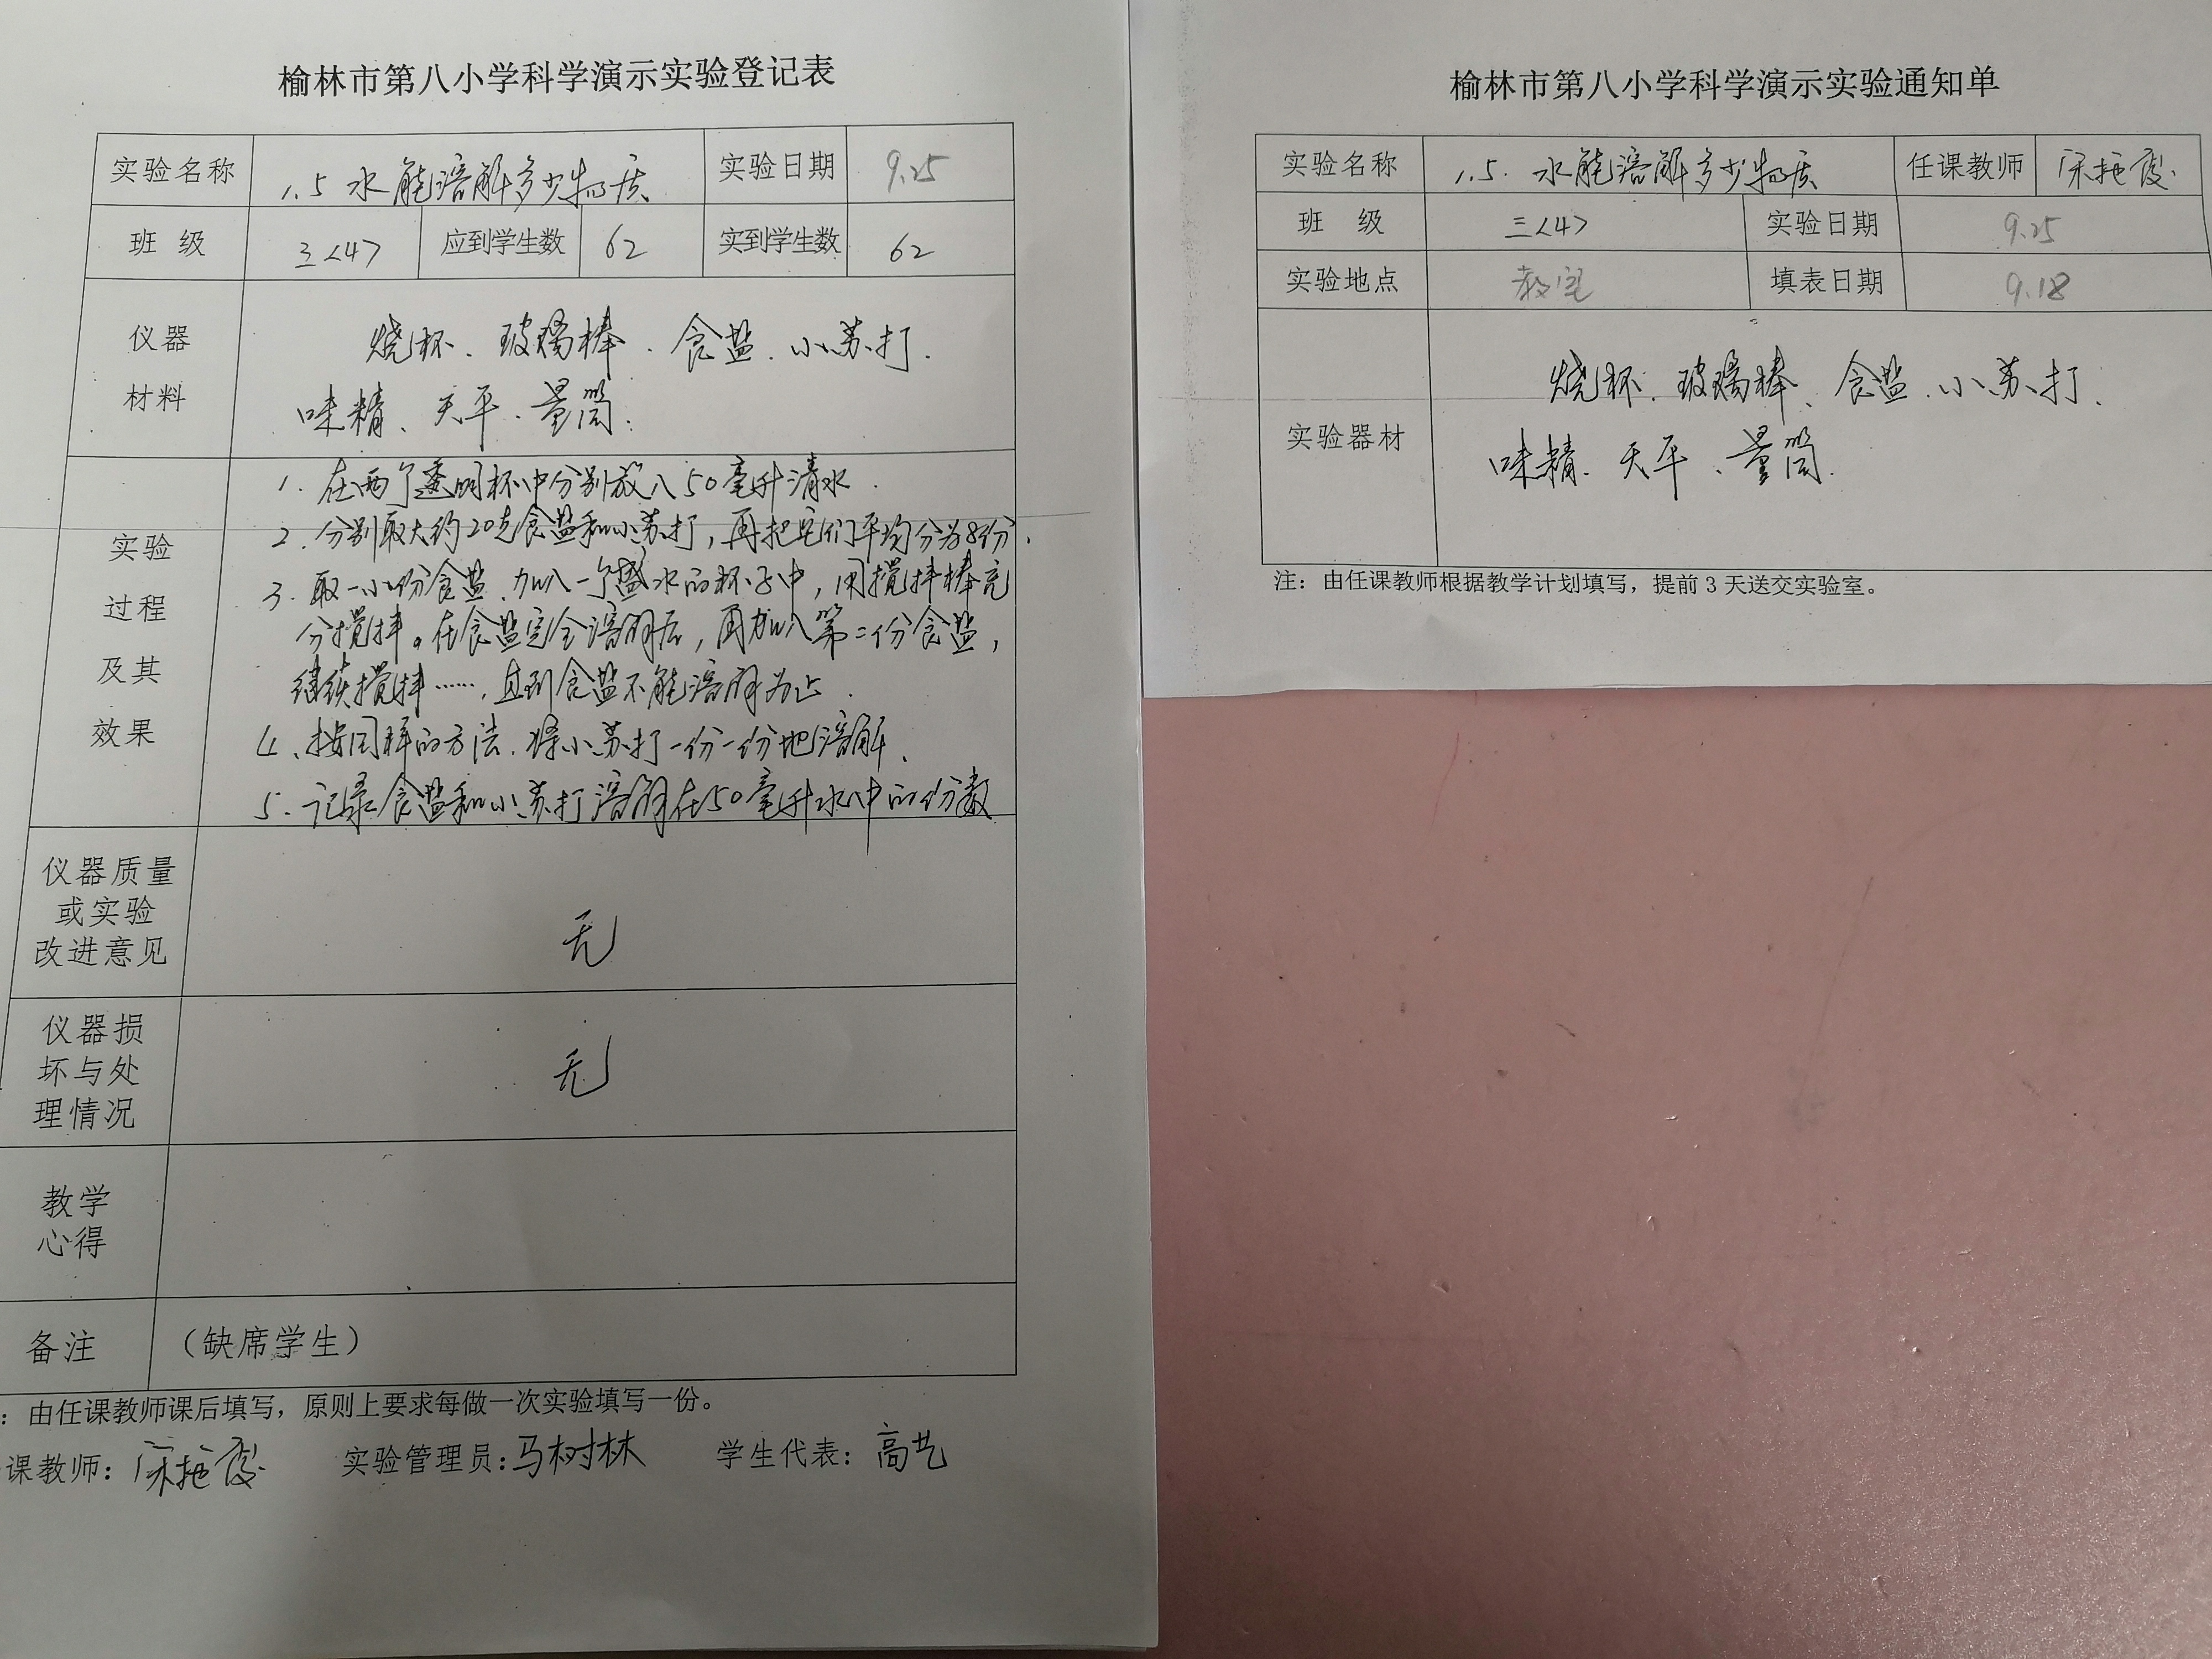 榆林市第八小学科学演示实验登记表
实验名称 1.5 水能溶解多少物质 实验日期 9.25
班 级 三<4> 应到学生数 62 实到学生数 62
仪器
材料
烧杯、玻璃棒、食盐、小苏打、
味精、天平、量筒.
实验
过程
及其
效果
1. 在两个透明杯中分别放入50毫升清水.
2. 分别取大约20克食盐和小苏打，再把它们平均分为8份.
3. 取一小份食盐、加入一个盛水的杯子中，用搅拌棒充
分搅拌。在食盐完全溶解后，再加入第二份食盐，
继续搅拌……，直到食盐不能溶解为止.
4、按同样的方法、将小苏打一份一份地溶解.
5. 记录食盐和小苏打溶解在50毫升水中的份数
仪器质量
或实验
改进意见
无
仪器损
坏与处
理情况
无
教学
心得
备注 （缺席学生）
：由任课教师课后填写，原则上要求每做一次实验填写一份。
课教师： 实验管理员：马树林 学生代表：高艺
榆林市第八小学科学演示实验通知单
实验名称 1.5. 水能溶解多少物质 任课教师
班 级 三<4> 实验日期 9.25
实验地点 教室 填表日期 9.18
实验器材
烧杯、玻璃棒、食盐、小苏打、
味精、天平、量筒.
注：由任课教师根据教学计划填写，提前 3 天送交实验室。